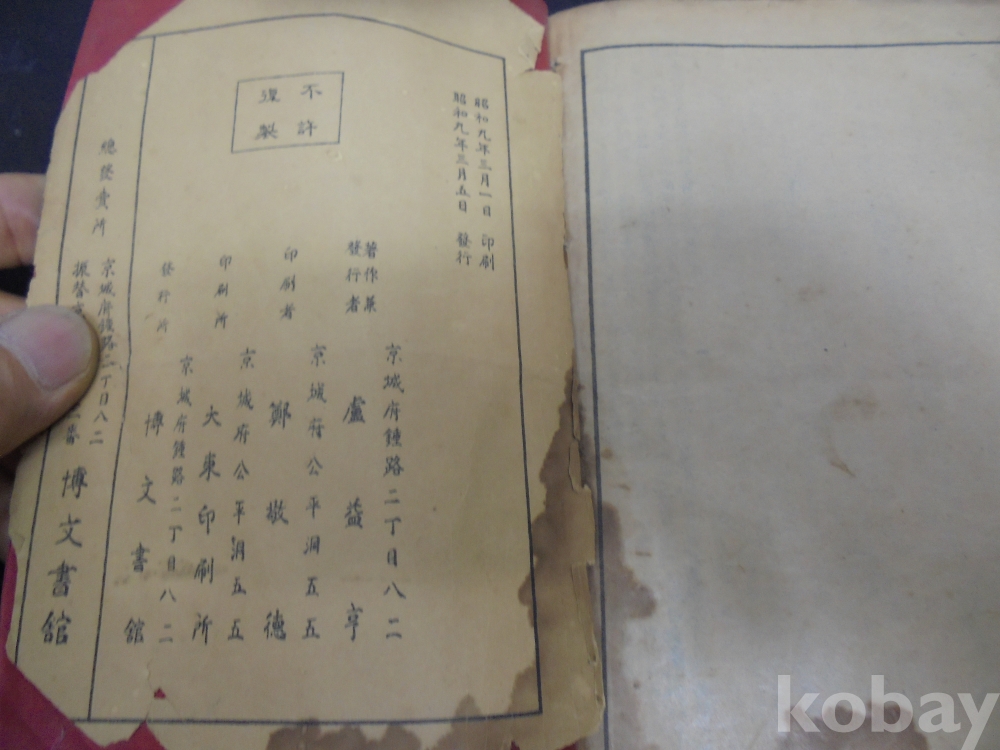 昭和九年三月一日 印刷
昭和九年三月五日 發行
不許
復製
京城府鍾路二丁目八二
著作兼
發行者
盧益亨
京城府公平洞五五
印刷者 鄭敬德
京城府公平洞五五
印刷所 大東印刷所
京城府鍾路二丁目八二
發行所 博文書館
總發賣所
京城府鍾路二丁目八二
振替京
二番
博文書館
kobay